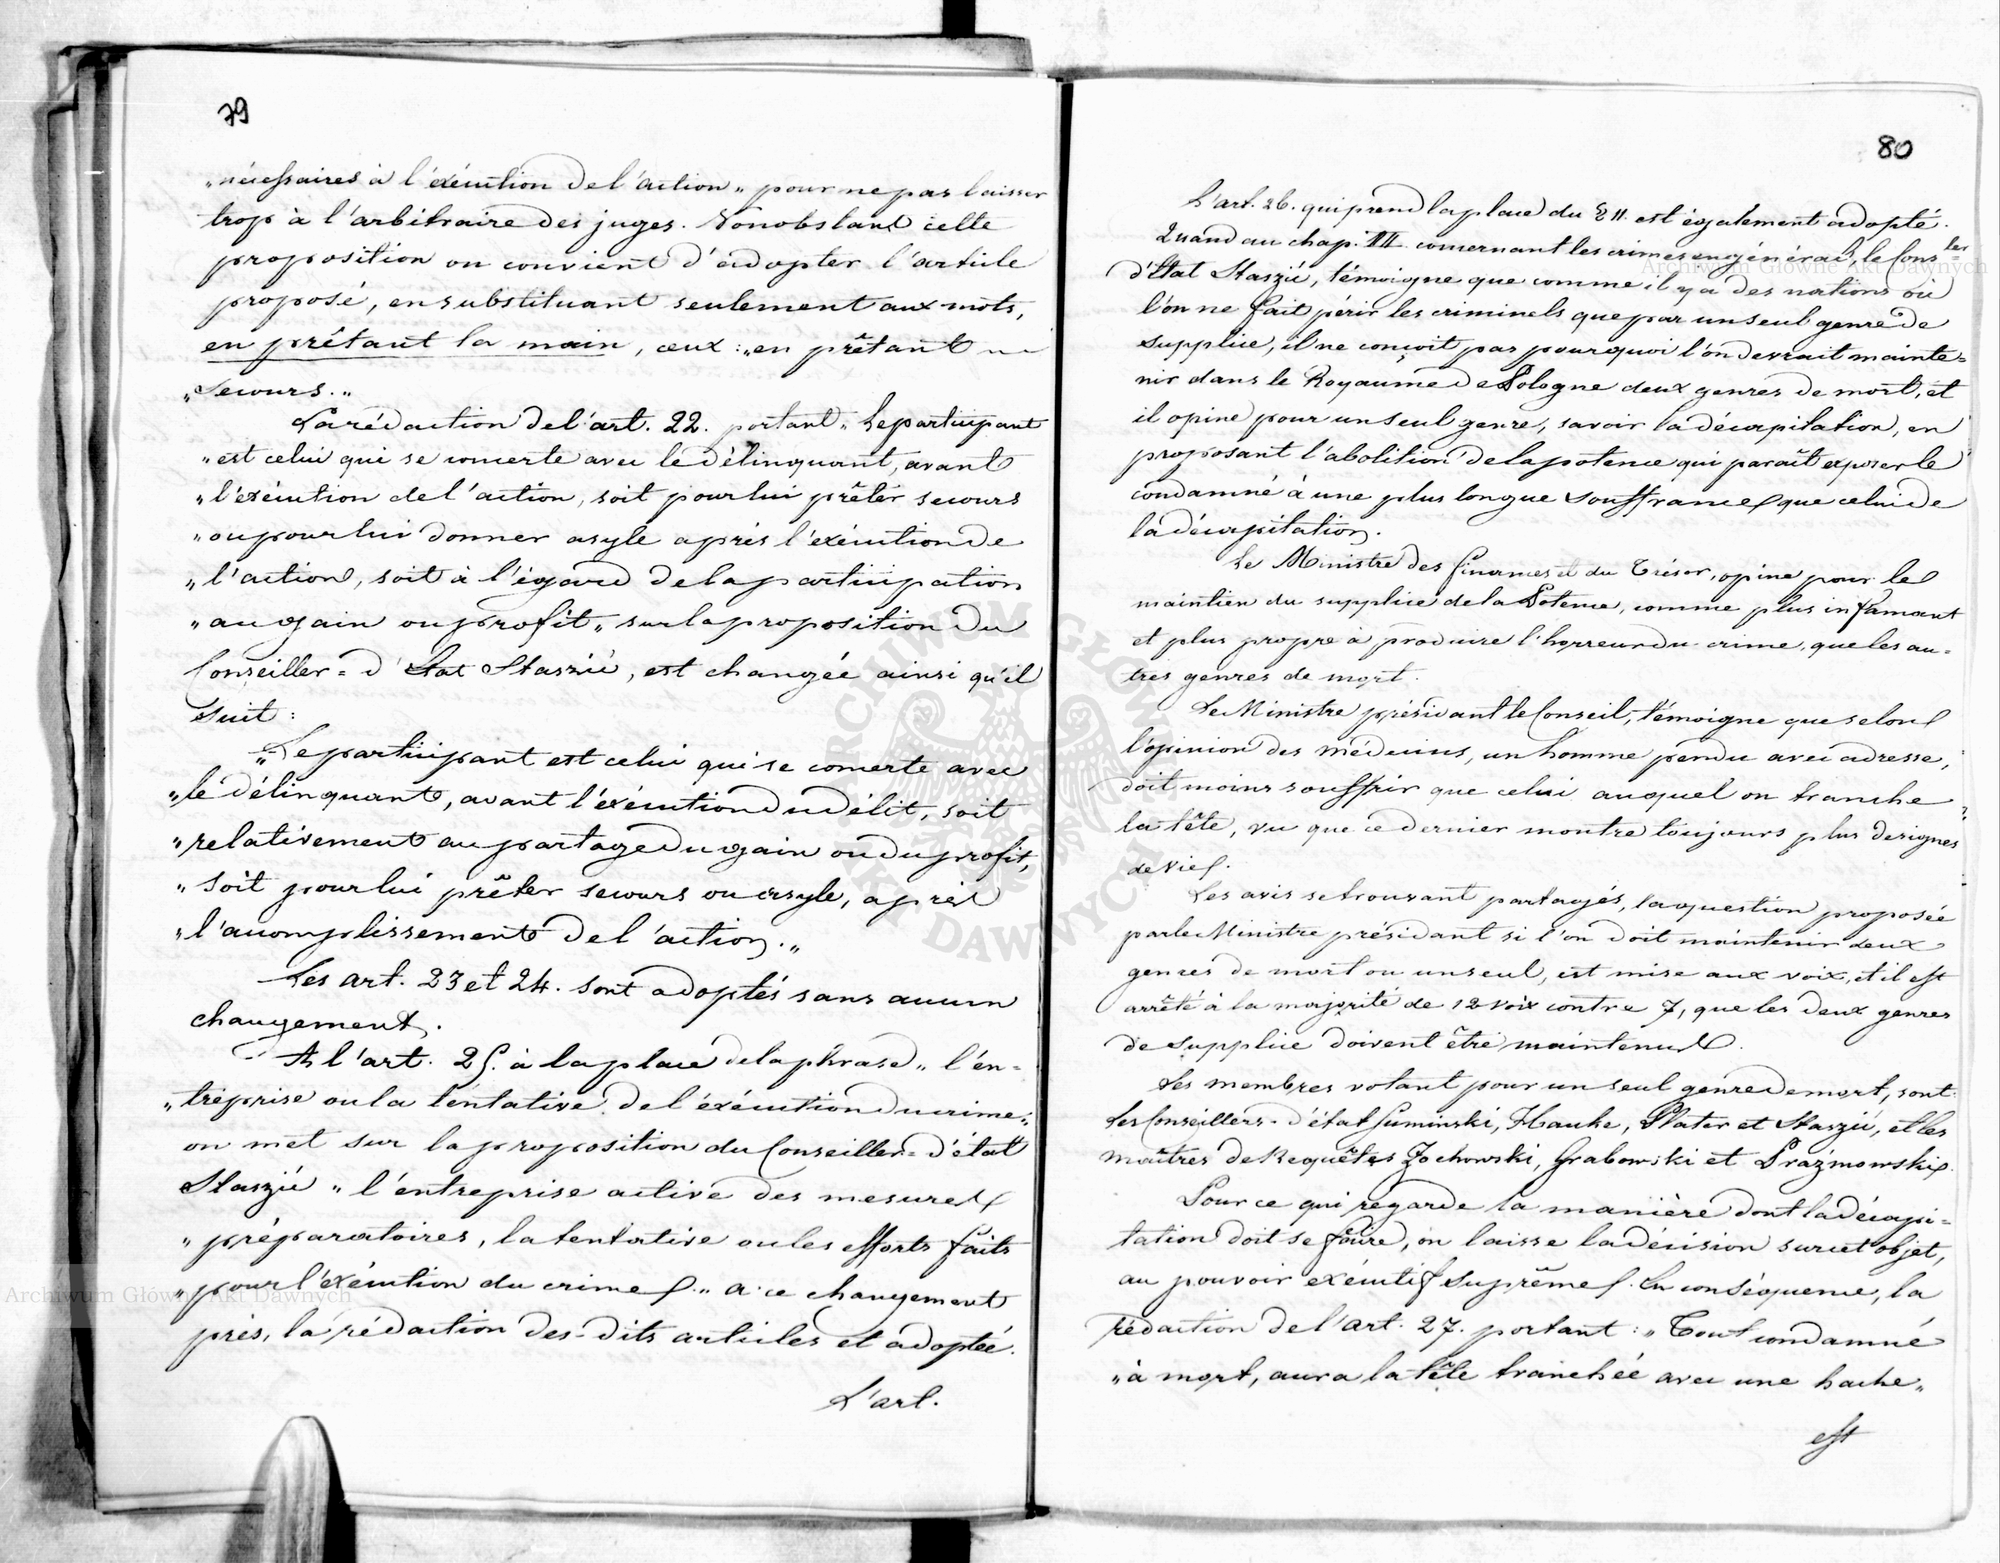 79
„nécessaires à l'éxécution de l'action„ pour ne pas laisser
trop à l'arbitraire des juges. Nonobstant cette
proposition on convient d'adopter l'article
proposé, en substituant seulement aux mots,
en prêtant la main, ceux: „en prêtant
„secours.„
La rédaction de l'art. 22. portant „Le participant
„est celui qui se concerte avec le délinquant, avant
„l'exécution de l'action, soit pour lui prêter secours
„ou pour lui donner asyle après l'éxécution de
„l'action, soit à l'égard de la participation
„au gain ou profit„ sur la proposition du
Conseiller=d'Etat Staszic, est changée ainsi qu'il
suit:
„Le participant est celui qui se concerte avec
„le délinquant, avant l'éxécution du délit, soit
„relativement au partage du gain ou du profit,
„soit pour lui prêter secours ou asyle, après
„l'accomplissement de l'action.„
Les art. 23 et 24. sont adoptés sans aucun
changement.
A l'art. 25. à la place de la phrase „l'en=
„treprise ou la tentative de l'éxécution du crime„
on met sur la proposition du Conseiller=d'état
Staszic „l'entreprise active des mesures
„préparatoires, la tentative ou les efforts faits
„pour l'éxécution du crime.„ A ce changement
près, la rédaction des-dits articles et adoptée.
L'art.
80
L'art. 26. qui prend la place du § 11. est également adopté.
Quand au chap. III. concernant les crimes en général, le Cons=ler
d'Etat Staszic, témoigne que comme il y a des nations où
l'on ne fait périr les criminels que par un seul genre de
supplice, il ne conçoit pas pourquoi l'on devrait mainte=
nir dans le Royaume de Pologne deux genres de mort, et
il opine pour un seul genre, savoir la décapitation, en
proposant l'abolition de la potence qui paraît exposer le
condamné à une plus longue souffrance que celui de
la décapitation.
Le Ministre des finances et du Trésor, opine pour le
maintien du supplice de la Potence, comme plus infamant
et plus propre à produire l'horreur du crime, que les au=
tres genres de mort.
Le Ministre présidant le Conseil, témoigne que selon
l'opinion des médecins, un homme pendu avec adresse,
doit moins souffrir que celui auquel on tranche
la tête, vu que ce dernier montre toujours plus de signes
de vie.
Les avis se trouvant partagés, la question proposée
par le Ministre présidant si l'on doit maintenir deux
genres de mort ou un seul, est mise aux voix, et il est
arrêté à la majorité de 12 voix contre 7, que les deux genres
de supplice doivent être maintenus.
Les membres votant pour un seul genre de mort, sont:
Les Conseillers-d'état Suminski, Hauke, Plater et Staszic, et les
maîtres de Requêtes Zochowski, Grabowski et Prażmowski.
Pour ce qui regarde la manière dont la décapi=
tation doit se faire, on laisse la décision sur cet objet,
au pouvoir exécutif suprême. En conséquence, la
rédaction de l'art. 27. portant: „Tout condamné
„à mort, aura la tête tranchée avec une hache„
est